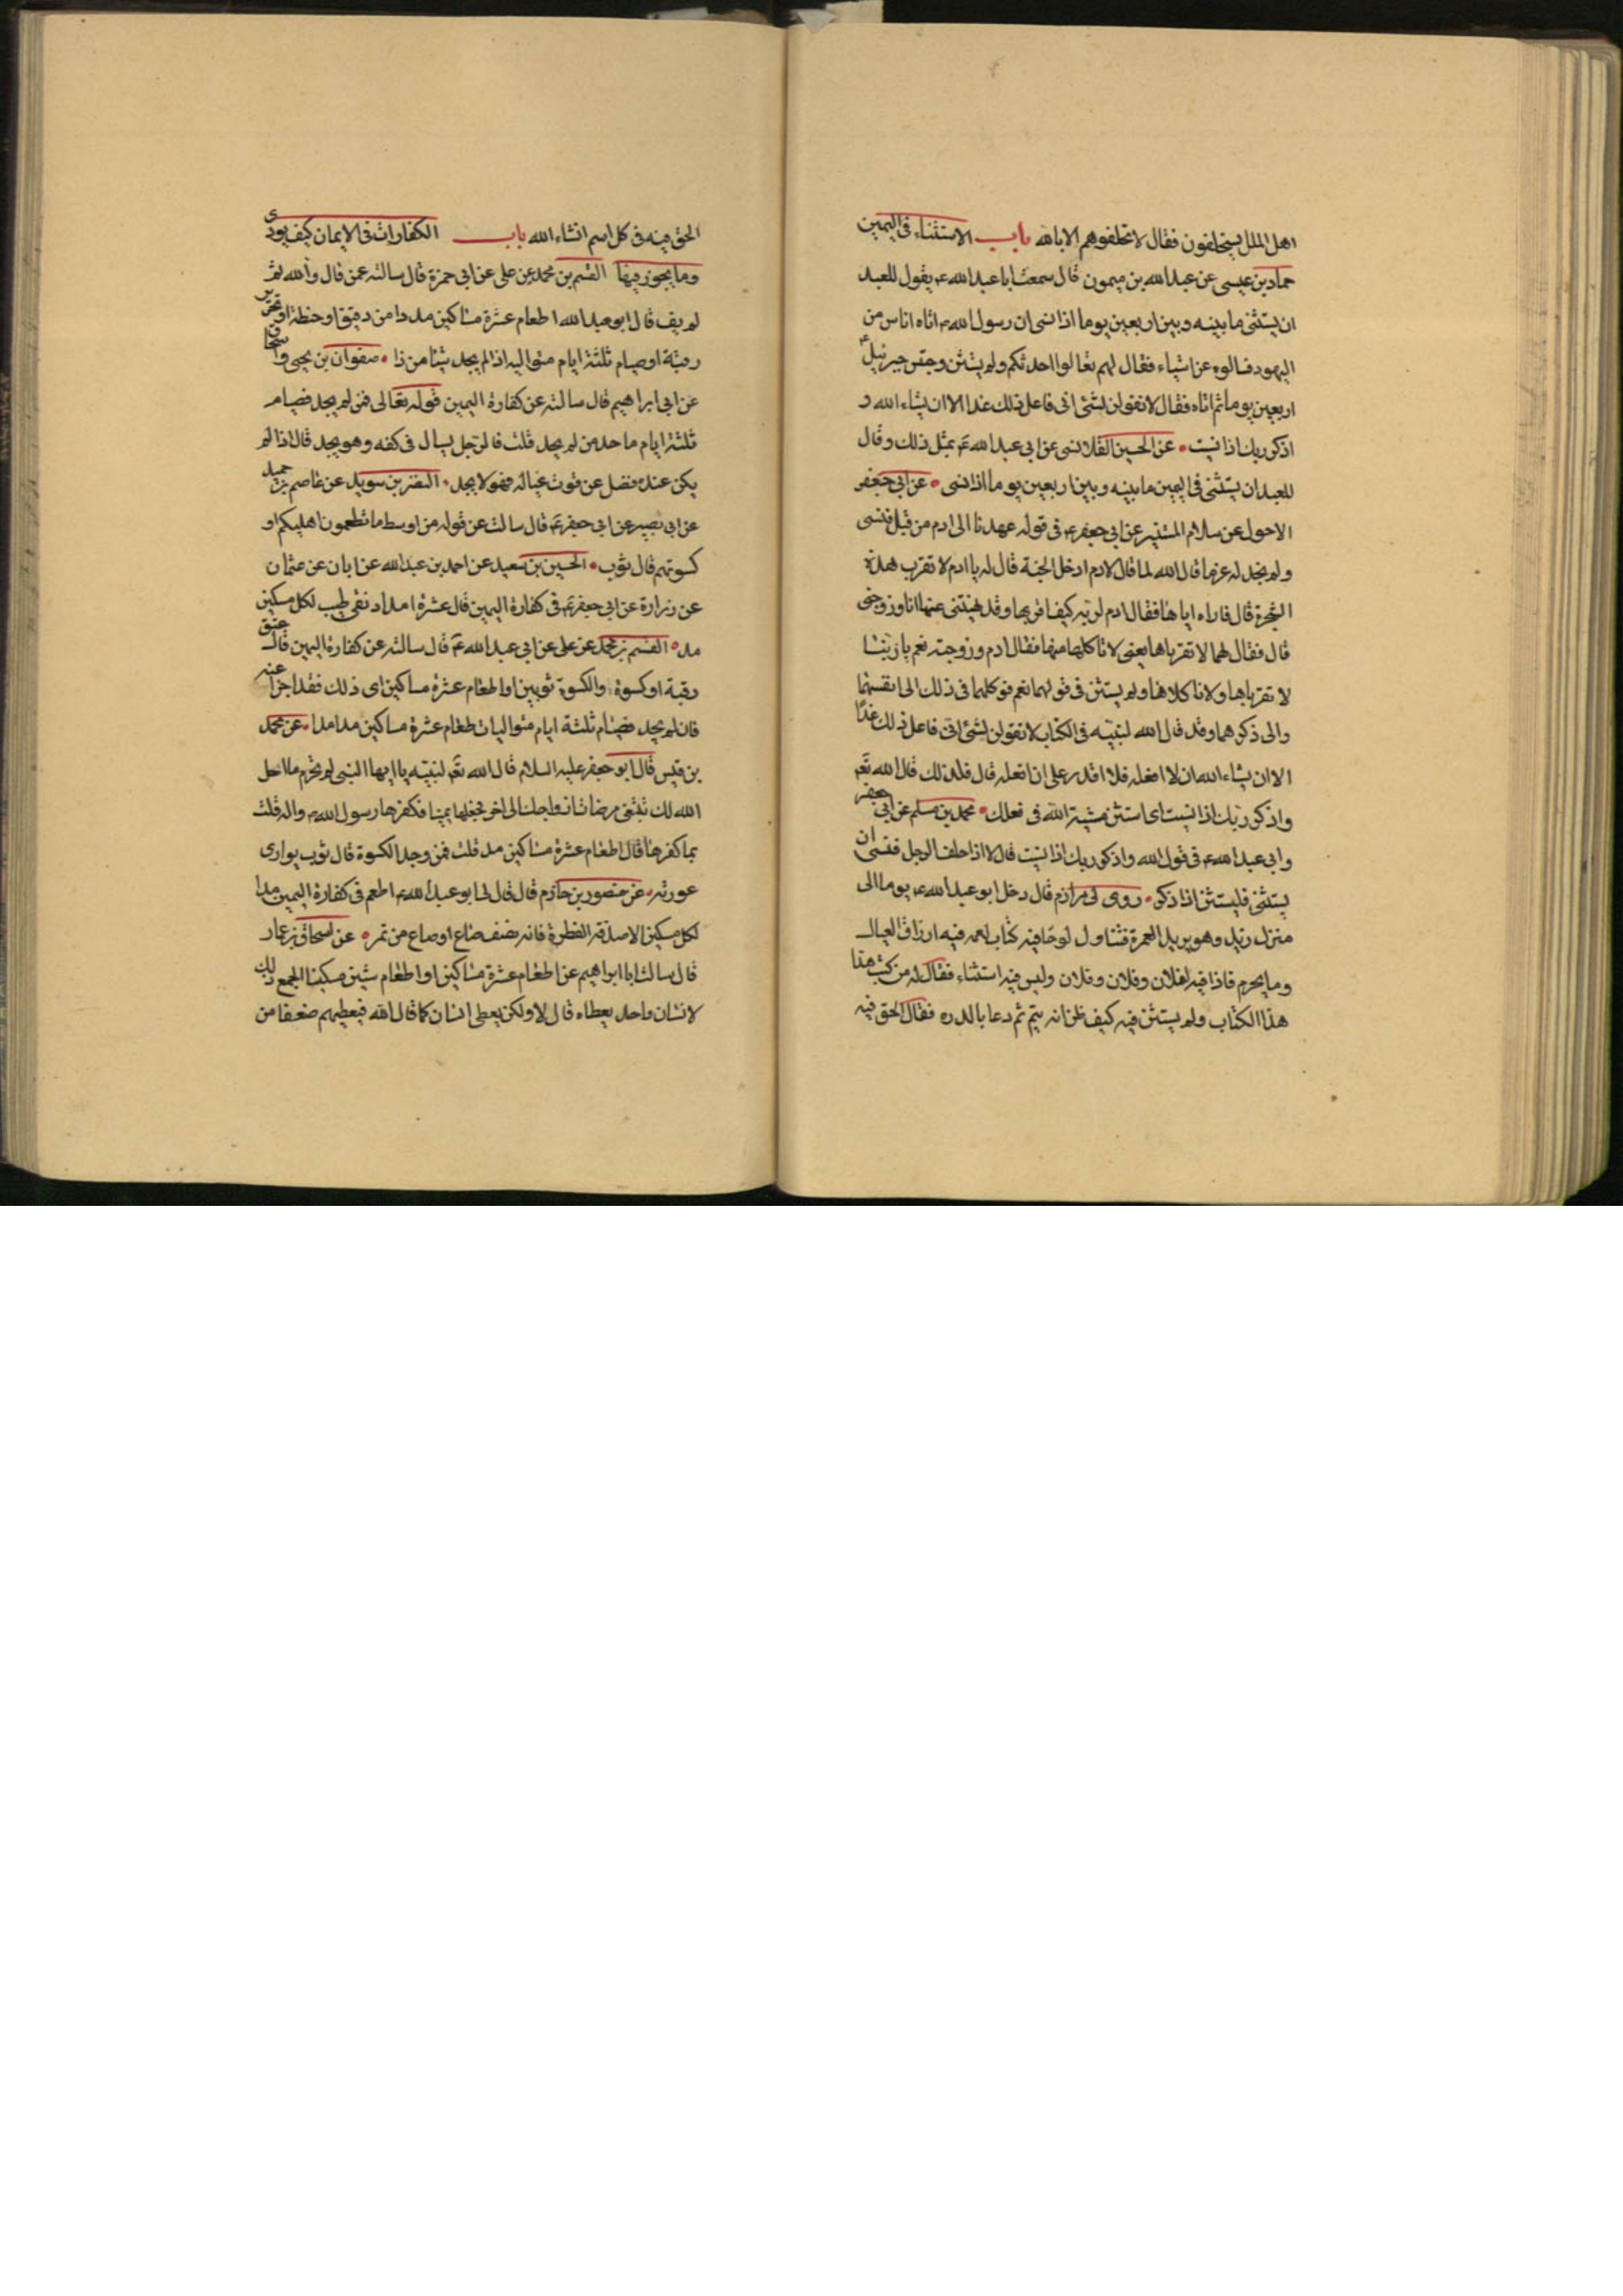 اهل الملل يستحلفون فقال لا تحلفوهم الا بالله باب الاستثناء فى اليمين
حماد بن عيسى عن عبد الله بن ميمون قال سمعت ابا عبد الله ع يقول للعبد
ان يستثنى ما بينه وبين اربعين يوما اذا نسى ان رسول الله ص اتاه اناس من
اليهود فسالوه عن اشياء فقال لهم تعالوا احدثكم ولم يستثن وحبس جبرئيل ع
اربعين يوما ثم اتاه فقال لا تقولن لشئ انى فاعل ذلك غدا الا ان يشاء الله و
اذكر ربك اذا نسيت عن الحسين القلانسى عن ابى عبد الله ع بمثل ذلك وقال
للعبد ان يستثنى فى اليمين ما بينه وبين اربعين يوما اذا نسى عن ابى جعفر
الاحول عن سلام المستنير عن ابى جعفر ع فى قوله عهدنا الى ادم من قبل فنسى
ولم نجد له عزما قال الله لما قال لادم ادخل الجنة قال له يا ادم لا تقرب هذه
الشجرة قال فاراه اياها فقال ادم لربه كيف اقربها وقد نهيتنى عنها انا وزوجتى
قال فقال لهما لا تقرباها يعنى لا تاكلا منها فقال ادم وزوجته نعم يا ربنا
لا نقربها ولا ناكلها ولم يستثن فى قولهما نعم فوكلهما فى ذلك الى انفسهما
والى ذكرهما وقد قال الله لنبيه فى الكتاب لا تقولن لشئ انى فاعل ذلك غدًا
الا ان يشاء الله ان لا افعله فلا اقدر على ان افعله قال فلذلك قال الله تع
واذكر ربك اذا نسيت اى استثن مشية الله فى فعلك محمد بن مسلم عن ابى جعفر
وابى عبد الله ع فى قول الله واذكر ربك اذا نسيت قال لا اذا حلف الرجل فنسى ان
يستثنى فليستثن اذا ذكر روى لى مرازم قال دخل ابو عبد الله ع يوما الى
منزل زيد وهو يريد العمرة فتناول لوحًا فيه كتاب لعمه فيه ارزاق العيال
وما يحرم فاذا فيه لفلان وفلان وفلان وليس فيه استثناء فقال له من كتب هذا
هذا الكتاب ولم يستثن فيه كيف ظن انه يتم ثم دعا بالدره فقال الحق فيه
الحق فيه فى كل اسم انشاء الله باب الكفارات فى الايمان كيف يودى
وما يجوز فيها القسم بن محمد عن على عن ابى حمزة قال سالته عمن قال والله ثم
لم يف قال ابو عبد الله اطعام عشرة مساكين مدا من دقيق او حنطة او تحرير
رقبة او صيام ثلثة ايام متواليه اذا لم يجد شيئا من ذا صفوان بن يحيى واسحاق
عن ابى ابراهيم قال سالته عن كفارة اليمين قوله تعالى فمن لم يجد فصيام
ثلثة ايام ما حد من لم يجد قلت فالرجل يسال فى كفه وهو يجد قال اذا لم
يكن عنده فضل عن قوت عياله فهو لا يجد النضر بن سويد عن عاصم بن حميد
عن ابى بصير عن ابى جعفر ع قال سالت عن قوله من اوسط ما تطعمون اهليكم او
كسوتهم قال ثوب الحسين بن سعيد عن احمد بن عبد الله عن ابان عن عثمان
عن زرارة عن ابى جعفر ع فى كفارة اليمين قال عشرة امداد نقى طيب لكل مسكين
مد القسم بن محمد عن على عن ابى عبد الله ع قال سالته عن كفارة اليمين قال عتق
رقبة او كسوة والكسوة ثوبين او اطعام عشرة مساكين اى ذلك فقد اجزا عنه
فان لم يجد فصيام ثلثة ايام متواليات طعام عشرة مساكين مدا مدا عن محمد
بن قيس قال ابو جعفر عليه السلام قال الله تع لنبيه يا ايها النبى لم تحرم ما احل
الله لك تبتغى مرضات ازواجك الى اخر فجعلها يمينا فكفرها رسول الله ص واله قلت
بما كفرها قال اطعام عشرة مساكين مد قلت فمن وجد الكسوة قال ثوب يوارى
عورته عن منصور بن حازم قال قال لى ابو عبد الله ع اطعم فى كفارة اليمين مدا
لكل مسكين الا صدقه الفطرة فانه نصف صاع او صاع من تمر عن اسحاق بن عمار
قال سالت ابا ابراهيم عن اطعام عشرة مساكين او اطعام ستين مسكينا ايجمع ذلك
لانسان واحد يعطاه قال لا ولكن يعطى انسان كما قال الله فيعطيهم ضعفا من